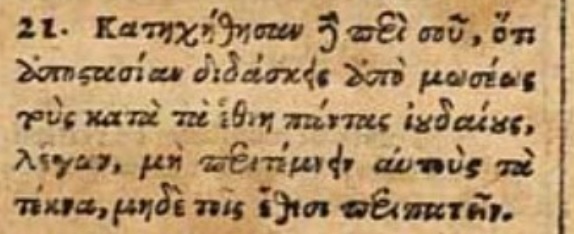 21. Κατηχήθησαν ἢ περὶ σοῦ, ὅτι
ἀποστασίαν διδάσκεις ἀπὸ μωσέως
τοὺς κατὰ τὰ ἔθνη πάντας ἰουδαίους,
λέγων, μὴ περιτέμνειν αὐτοὺς τὰ
τέκνα, μηδὲ τοῖς ἔθεσι περιπατεῖν.